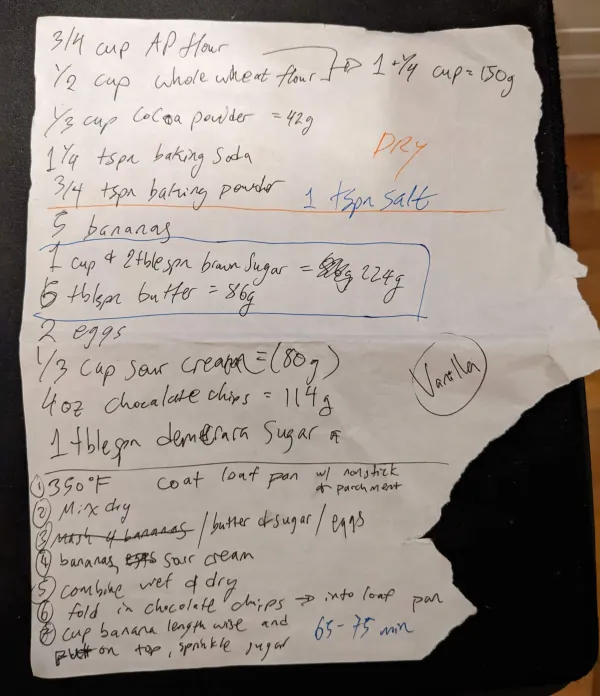 3/4 cup AP flour
1/2 cup whole wheat flour → 1 + 1/4 cup = 150g
1/3 cup Cocoa powder = 42g
1 1/4 tspn baking Soda
DRY
3/4 tspn baking powder
1 tspn salt
5 bananas
1 cup & 2 tblespn brown Sugar = 224g
6 tblspn butter = 86g
2 eggs
1/3 cup sour cream = (80g)
Vanilla
4oz chocalate chips = 114g
1 tblespn demerara Sugar
① 350°F coat loaf pan w/ nonstick & parchment
② Mix dry
③ Mash 4 bananas / butter & sugar / eggs
④ bananas, eggs sour cream
⑤ combine wet & dry
⑥ fold in chocolate chips → into loaf pan
⑦ cup banana length wise and
put on top, sprinkle sugar 65-75 min